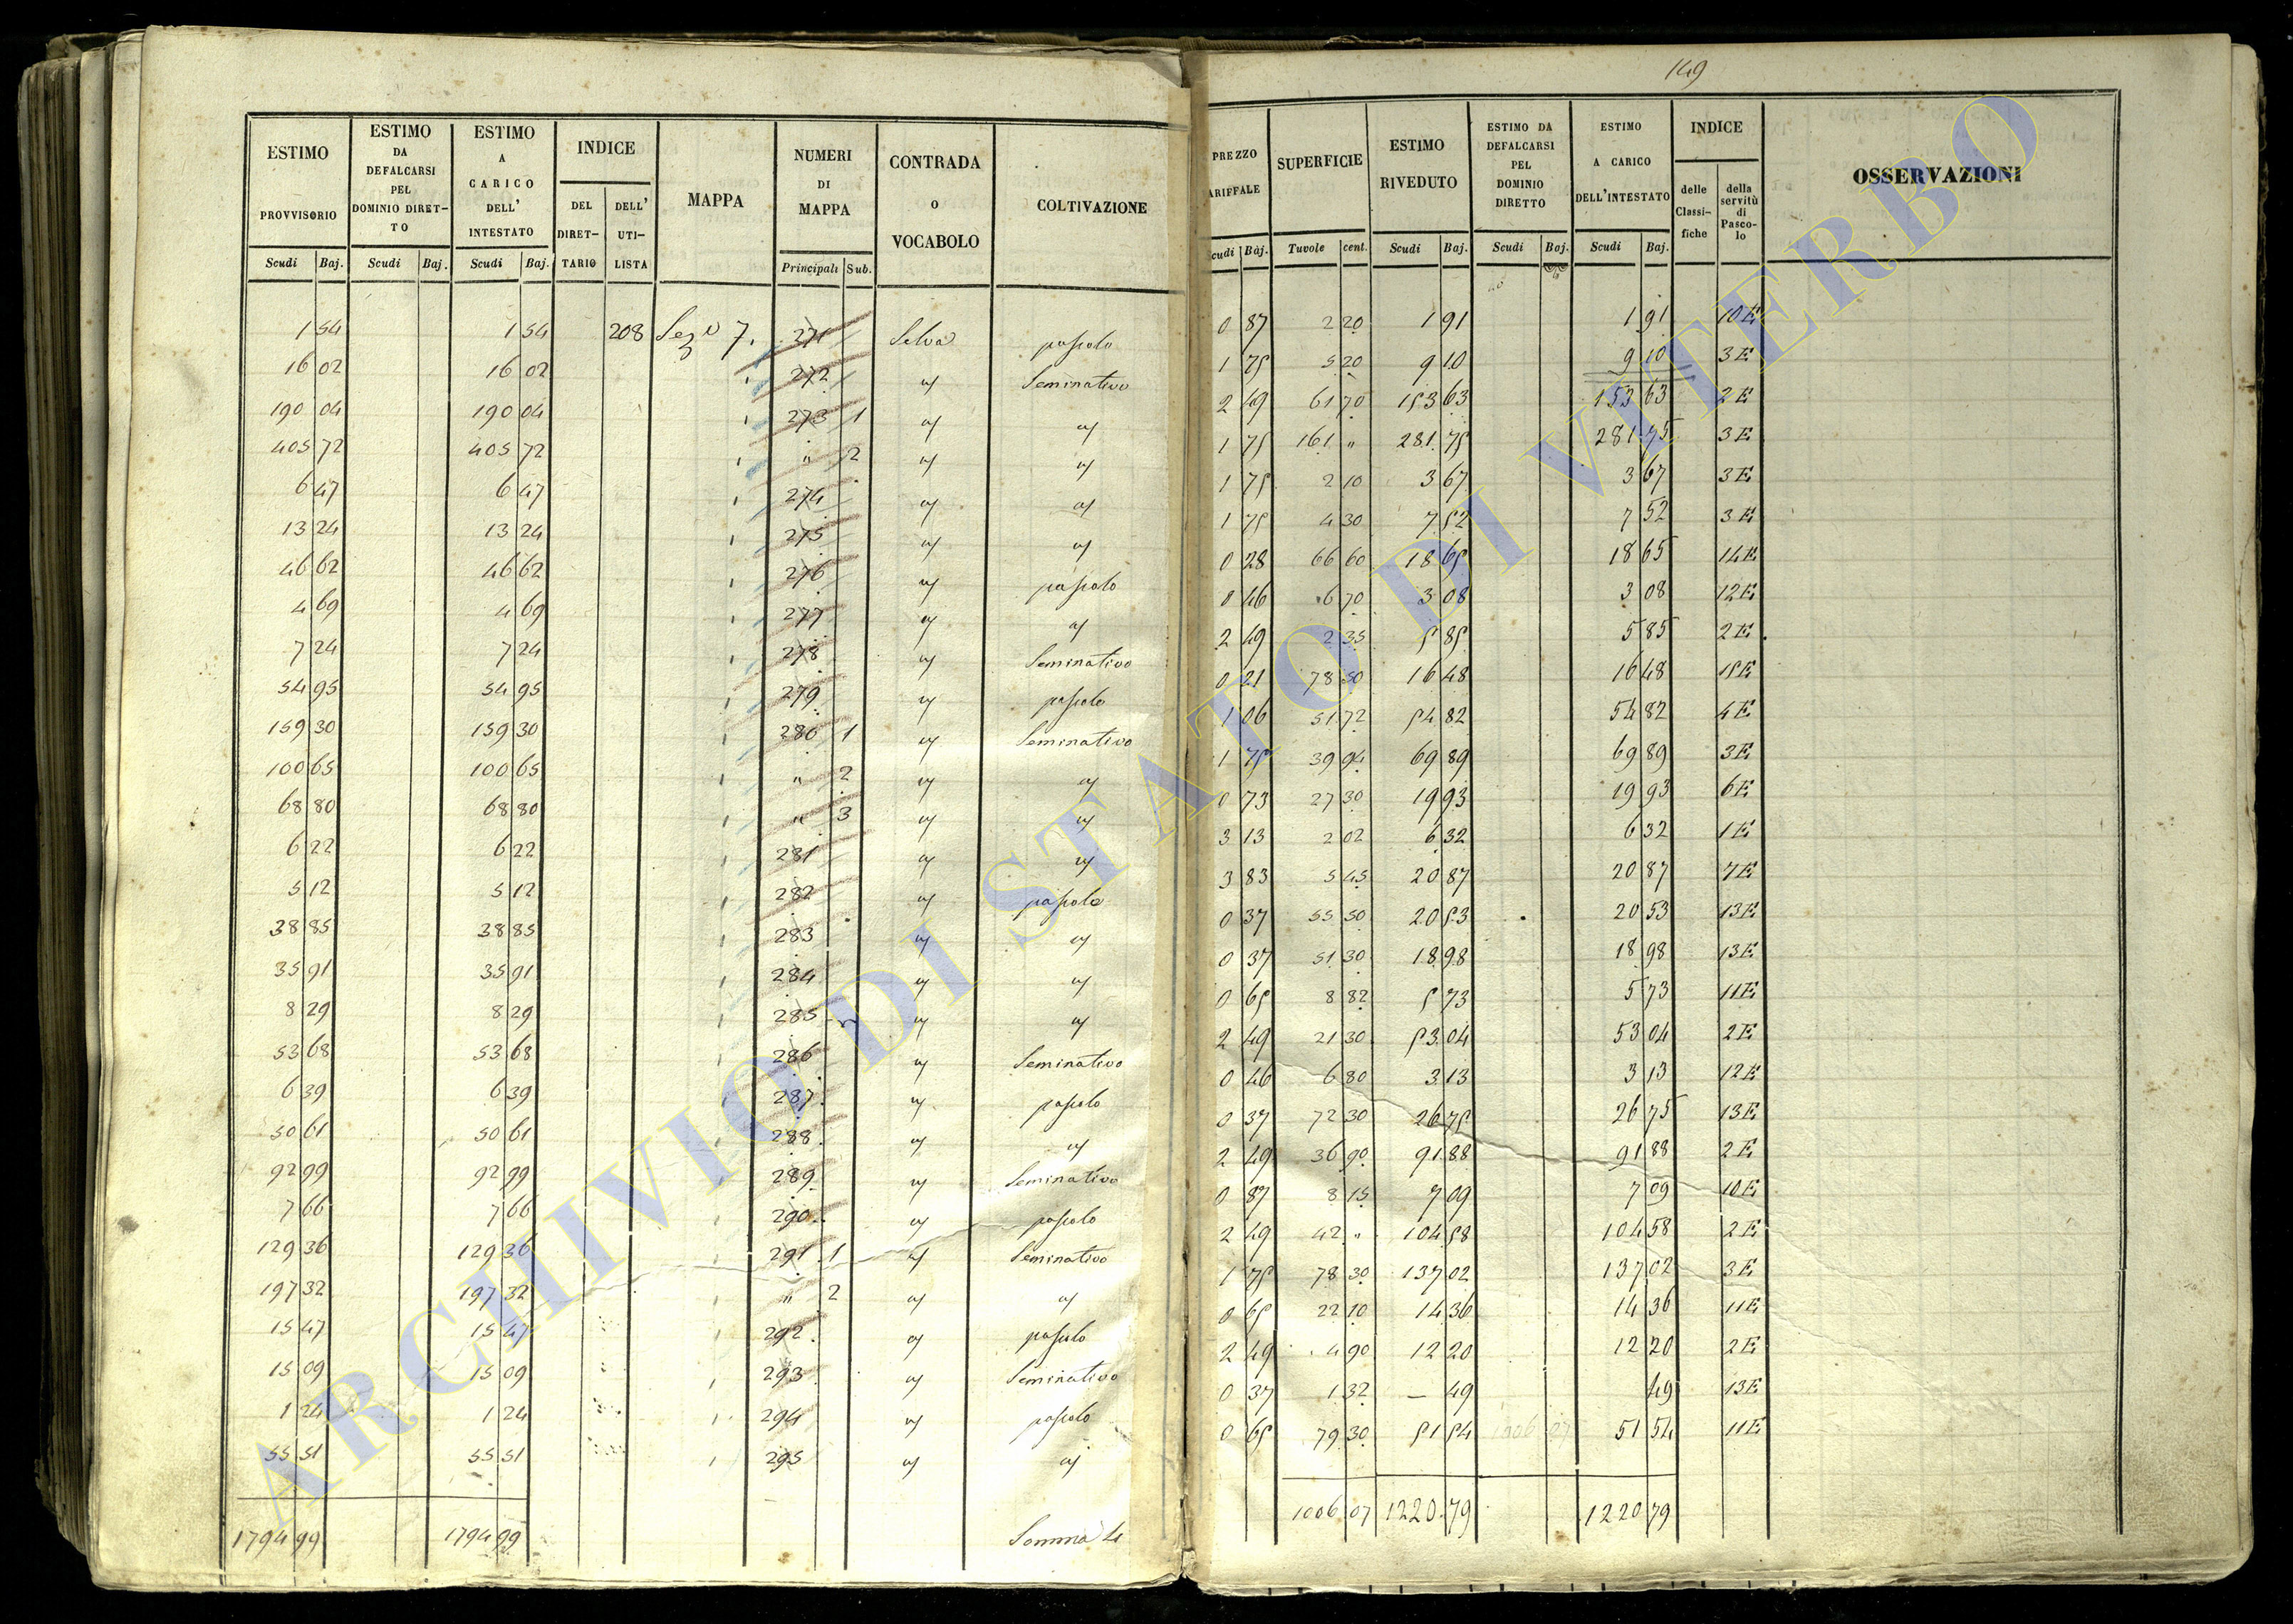 149
ESTIMO PROVVISORIO | ESTIMO DA DEFALCARSI PEL DOMINIO DIRETTO | ESTIMO A CARICO DELL' INTESTATO | INDICE | MAPPA | NUMERI DI MAPPA | CONTRADA O VOCABOLO | COLTIVAZIONE | PREZZO ARIFFALE | SUPERFICIE | ESTIMO RIVEDUTO | ESTIMO DA DEFALCARSI PEL DOMINIO DIRETTO | ESTIMO A CARICO DELL'INTESTATO | INDICE | OSSERVAZIONI
DEL DIRETTARIO | DELL' UTILISTA | delle Classifiche | della servitù di Pascolo
Scudi | Baj. | Scudi | Baj. | Scudi | Baj. | Principali | Sub. | cudi | Baj. | Tuvole | cent. | Scudi | Baj. | Scudi | Baj. | Scudi | Baj.
1 54 | 1 54 | 208 | Sez.e 7. | 271 | Selva | pascolo | 0 87 | 2 20 | 1 91 | 1 91 | 10 E
16 02 | 16 02 | 272 | " | Seminativo | 1 75 | 5 20 | 9 10 | 9 10 | 3 E
190 04 | 190 04 | 273 | 1 | " | " | 2 49 | 61 70 | 153 63 | 153 63 | 2 E
405 72 | 405 72 | " | 2 | " | " | 1 75 | 161 " | 281 75 | 281 75 | 3 E
6 47 | 6 47 | 274 | " | " | 1 75 | 2 10 | 3 67 | 3 67 | 3 E
13 24 | 13 24 | 275 | " | " | 1 75 | 4 30 | 7 52 | 7 52 | 3 E
46 62 | 46 62 | 276 | " | pascolo | 0 28 | 66 60 | 18 65 | 18 65 | 14 E
4 69 | 4 69 | 277 | " | " | 0 46 | 6 70 | 3 08 | 3 08 | 12 E
7 24 | 7 24 | 278 | " | Seminativo | 2 49 | 2 35 | 5 85 | 5 85 | 2 E
54 95 | 54 95 | 279 | " | pascolo | 0 21 | 78 50 | 16 48 | 16 48 | 15 E
159 30 | 159 30 | 280 | 1 | " | Seminativo | 1 06 | 51 72 | 54 82 | 54 82 | 4 E
100 65 | 100 65 | " | 2 | " | " | 1 75 | 39 94 | 69 89 | 69 89 | 3 E
68 80 | 68 80 | " | 3 | " | " | 0 73 | 27 30 | 19 93 | 19 93 | 6 E
6 22 | 6 22 | 281 | " | " | 3 13 | 2 02 | 6 32 | 6 32 | 1 E
5 12 | 5 12 | 282 | " | pascolo | 3 83 | 5 45 | 20 87 | 20 87 | 7 E
38 85 | 38 85 | 283 | " | " | 0 37 | 55 50 | 20 53 | 20 53 | 13 E
35 91 | 35 91 | 284 | " | " | 0 37 | 51 30 | 18 98 | 18 98 | 13 E
8 29 | 8 29 | 285 | " | " | 0 65 | 8 82 | 5 73 | 5 73 | 11 E
53 68 | 53 68 | 286 | " | Seminativo | 2 49 | 21 30 | 53 04 | 53 04 | 2 E
6 39 | 6 39 | 287 | " | pascolo | 0 46 | 6 80 | 3 13 | 3 13 | 12 E
50 61 | 50 61 | 288 | " | " | 0 37 | 72 30 | 26 75 | 26 75 | 13 E
92 99 | 92 99 | 289 | " | Seminativo | 2 49 | 36 90 | 91 88 | 91 88 | 2 E
7 66 | 7 66 | 290 | " | pascolo | 0 87 | 8 15 | 7 09 | 7 09 | 10 E
129 36 | 129 36 | 291 | 1 | " | Seminativo | 2 49 | 42 " | 104 58 | 104 58 | 2 E
197 32 | 197 32 | " | 2 | " | " | 1 75 | 78 30 | 137 02 | 137 02 | 3 E
15 47 | 15 47 | 292 | " | pascolo | 0 65 | 22 10 | 14 36 | 14 36 | 11 E
15 09 | 15 09 | 293 | " | Seminativo | 2 49 | 4 90 | 12 20 | 12 20 | 2 E
1 24 | 1 24 | 294 | " | pascolo | 0 37 | 1 32 | — 49 | 49 | 13 E
55 51 | 55 51 | 295 | " | " | 0 65 | 79 30 | 51 54 | 51 54 | 11 E
1794 99 | 1794 99 | Somma | 1006 07 | 1220 79 | 1220 79
ARCHIVIO DI STATO DI VITERBO